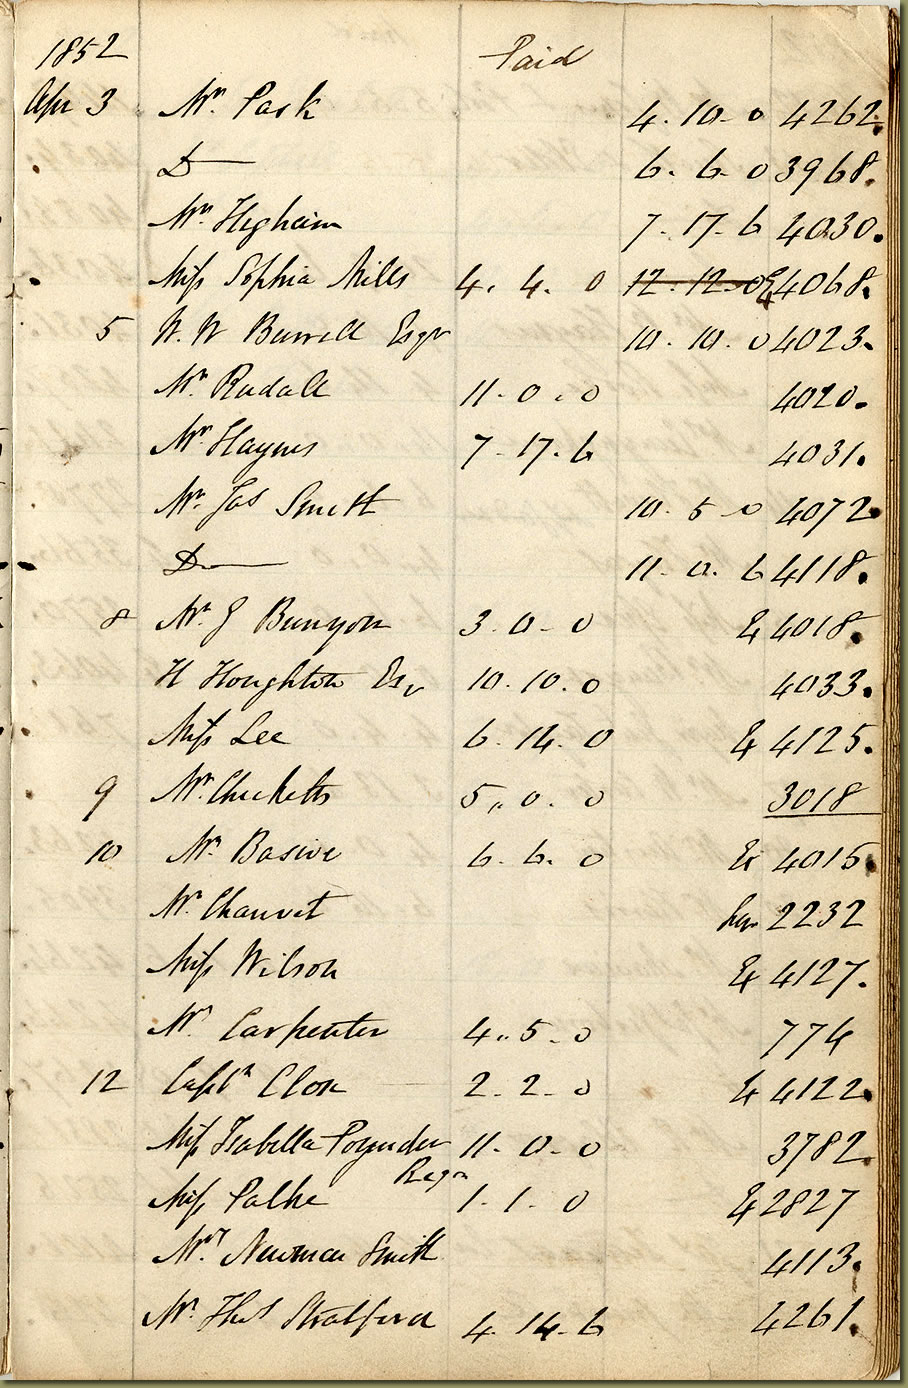 1852 Paid
Apr 3 Mr. Pask 4. 10. 0 4262.
D 6. 6. 0 3968.
Mr. Higham 7. 17. 6 4030.
Miss Sophia Mills 4. 4. 0 12. 12. 0 Ex 4068.
5 W. W Burrell Esqr 10. 10. 0 4023.
Mr. Rudall 11. 0. 0 4020.
Mr. Haynes 7. 17. 6 4031.
Mr. Jas Smith 10. 5. 0 4072.
Do 11. 0. 6 4118.
8 Mr. J Bunyon 3. 0. 0 Ex 4018.
H Houghton Esqr 10. 10. 0 4033.
Miss Lee 6. 14. 0 Ex 4125.
9 Mr. Checketts 5,, 0. 0 3018
10 Mr. Basive 6. 6. 0 Ex 4015.
Mr. Chauvet 2232
Miss Wilson Ex 4127.
Mr Carpenter 4,, 5. 0 774
12 Captn Close 2. 2. 0 Ex 4122.
Miss Isabella Poynder 11. 0. 0 3782.
Miss Palke 1. 1. 0 Ex 2827
Mr. Newman Smith 4113.
Mr. Thos Stratford 4. 14. 6 4261.